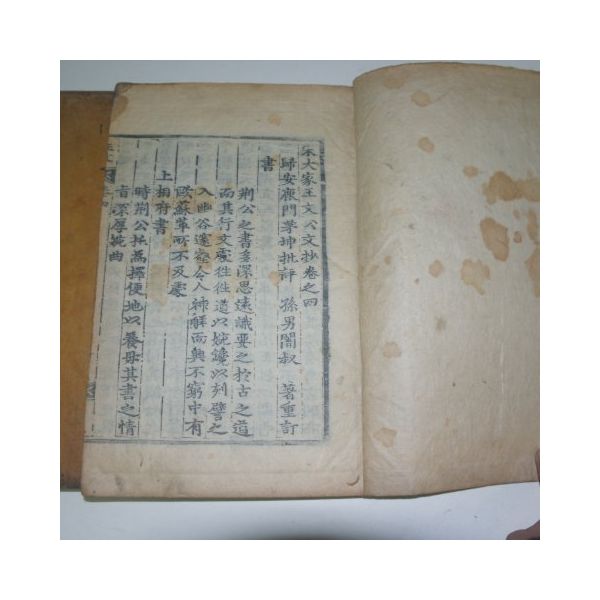 宋大家王文公文抄卷之四
歸安鹿門茅坤批評 孫男闇叔 著重訂
書
荆公之書多深思遠識要之於古之道
而其行文處徃徃遒以婉鑱以刻譬之
入幽谷邃壑令人神解而興不窮中有
歐蘇輩所不及處
上相府書
時荆公托爲擇便地以養母其書之情
旨深厚婉曲